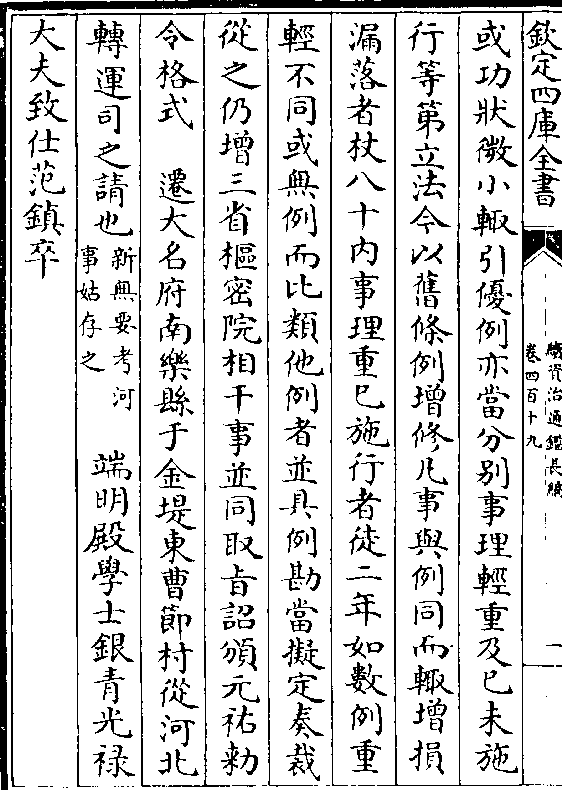 欽定四庫全書
續資治通鑑長編
卷四百十九
一
或功狀微小輙引優例亦當分别事理輕重及已未施
行等第立法今以舊條例增修凡事與例同而輙增損
漏落者杖八十内事理重已施行者徒二年如數例重
輕不同或無例而比類他例者並具例勘當擬定奏裁
從之仍增三省樞密院相干事並同取㫖詔頒元祐勅
令格式　遷大名府南樂縣于金堤東曹節村從河北
轉運司之請也新無要考河
事姑存之
端明殿學士銀青光禄
大夫致仕范鎮卒